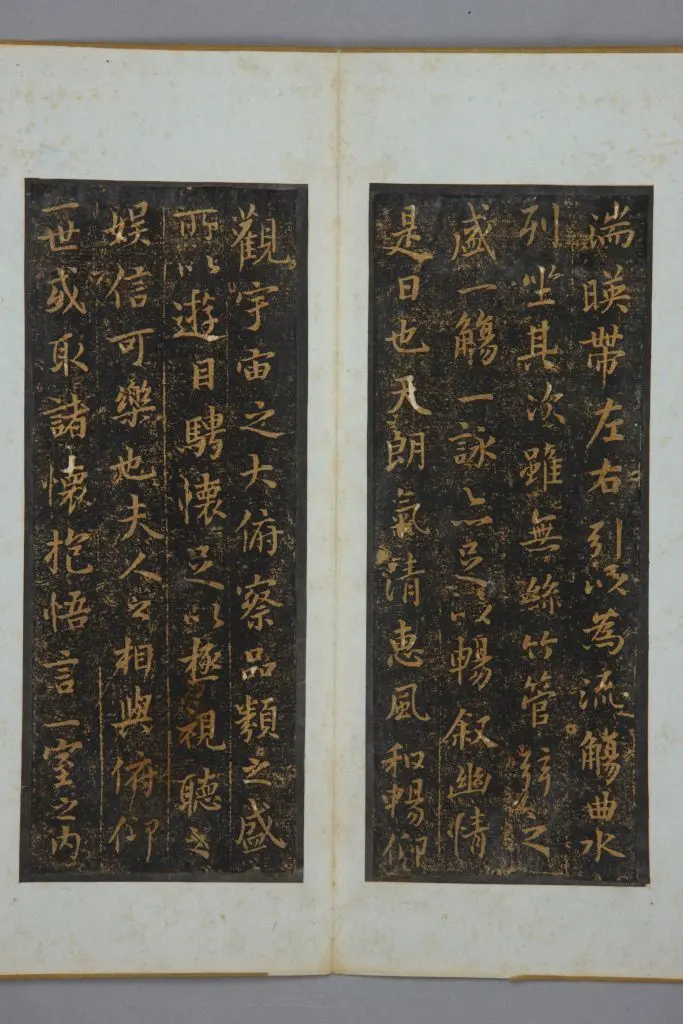 湍暎帶左右引以為流觴曲水
列坐其次雖無絲竹管弦之
盛一觴一詠亦足以暢叙幽情
是日也天朗氣清惠風和暢仰
觀宇宙之大俯察品類之盛
所以遊目騁懷足以極視聽之
娛信可樂也夫人之相與俯仰
一世或取諸懷抱悟言一室之内